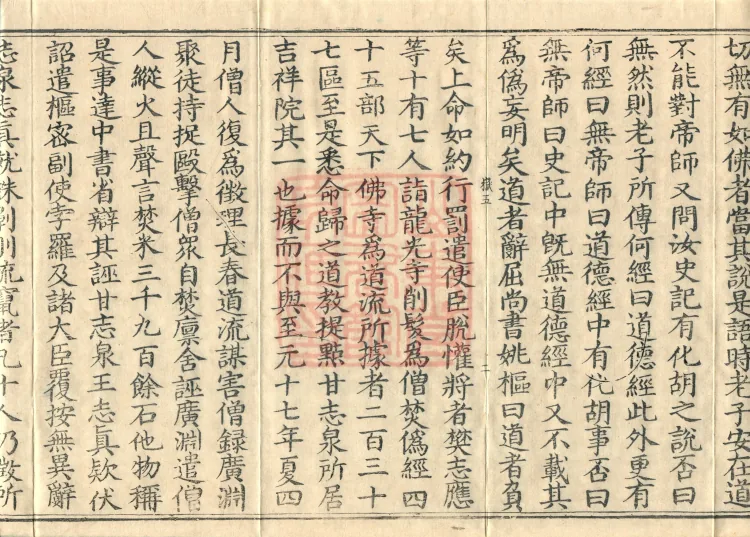 切無有如佛者當其說是語時老子安在道
不能對帝師又問汝史記有化胡之說否曰
無然則老子所傳何經曰道德經此外更有
何經曰無帝師曰道德經中有化胡事否曰
無帝師曰史記中旣無道德經中又不載其
爲僞妄明矣道者辭屈尚書姚樞曰道者負
嶽五 二
矣上命如約行罰遣使臣脫懽將者樊志應
等十有七人詣龍光寺削髮爲僧焚僞經四
十五部天下佛寺爲道流所據者二百三十
七區至是悉命歸之道教提點甘志泉所居
吉祥院其一也據而不與至元十七年夏四
月僧人復爲徵理長春道流謀害僧錄廣淵
聚徒持捉毆擊僧衆自焚廩舍誣廣淵遣僧
人縱火且聲言焚米三千九百餘石他物稱
是事達中書省辯其誣甘志泉王志眞欵伏
詔遣樞密副使孛羅及諸大臣覆按無異辭
志泉志眞就誅剕刖流竄者凡十人乃徵所